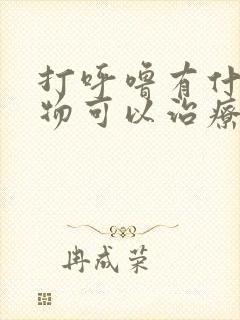 打呼噜有什
物可以治療
冉成荣